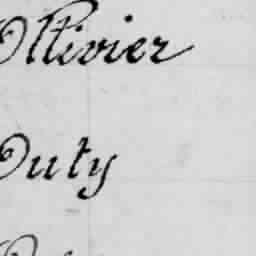 Ollivier
Duty